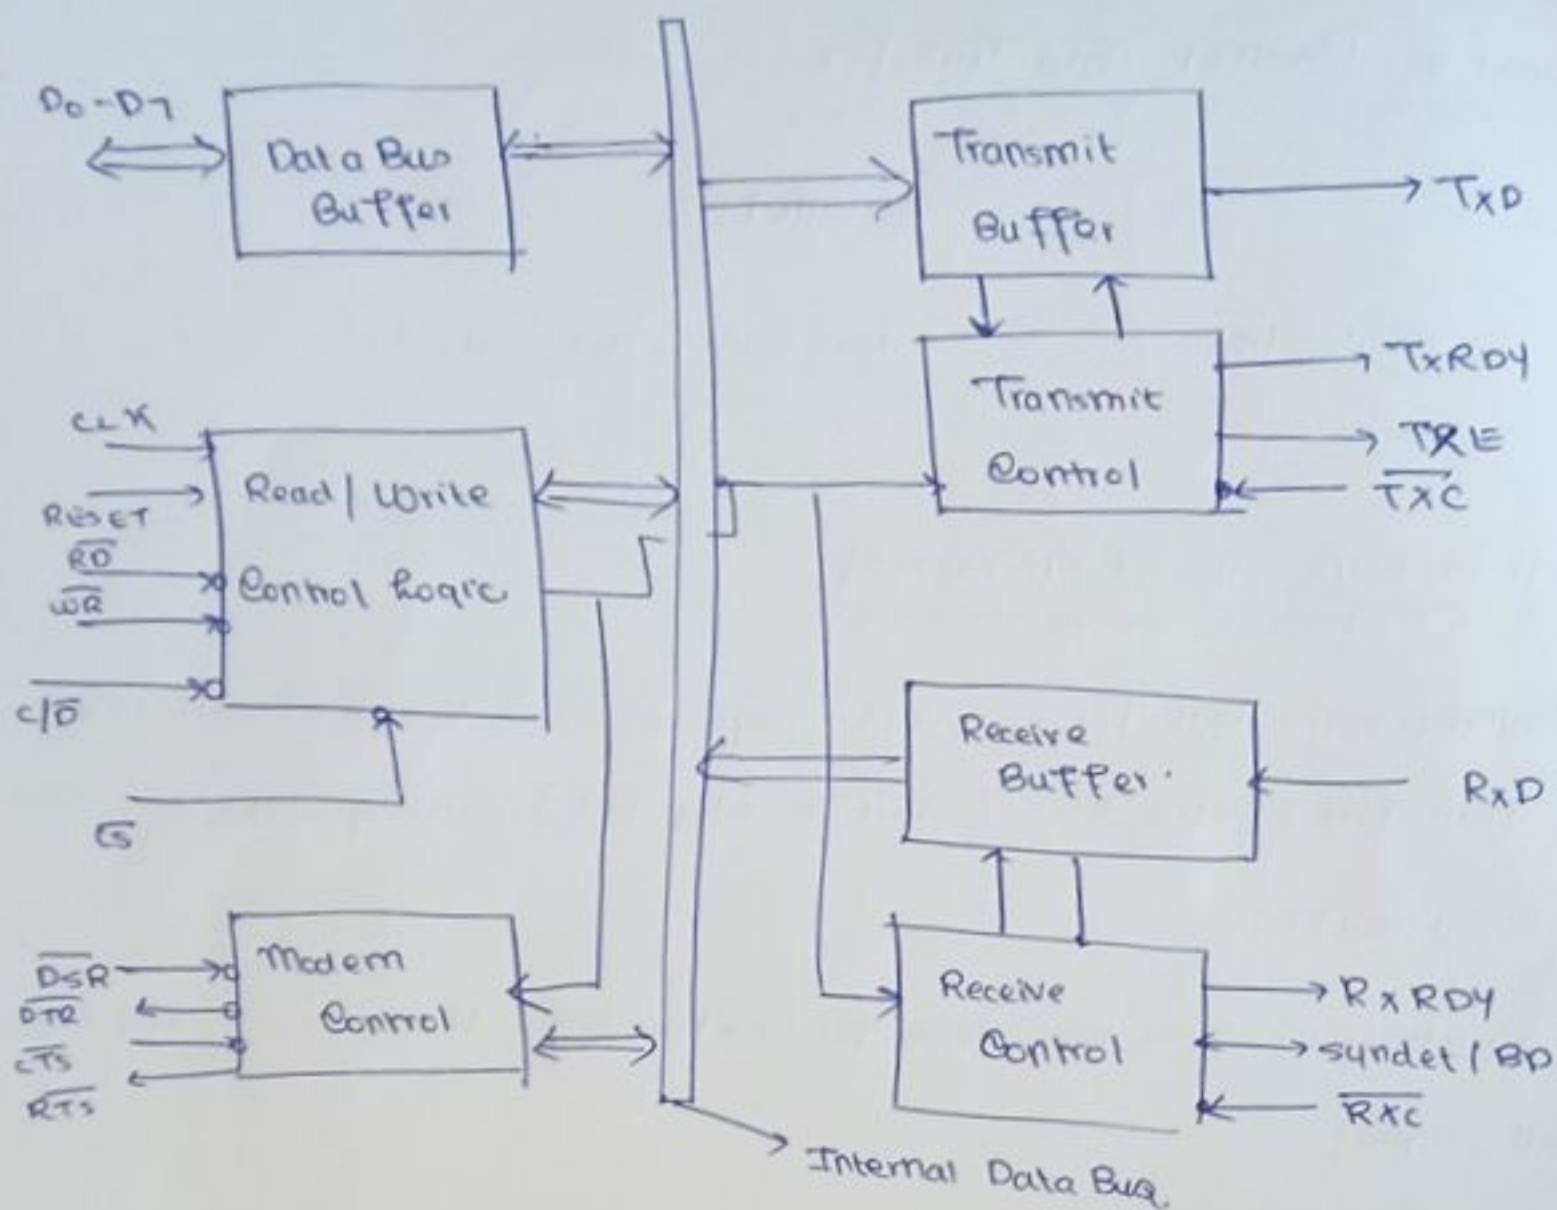 D0-D7
Data Bus
Buffer
CLK
RESET
R̅D̅
W̅R̅
C/D̅
C̅S̅
Read/Write
Control Logic
D̅S̅R̅
D̅T̅R̅
C̅T̅S̅
R̅T̅S̅
Modem
Control
Transmit
Buffer
TxD
Transmit
Control
TxRDY
TXE
T̅X̅C̅
Receive
Buffer
RxD
Receive
Control
RxRDY
syndet/BD
R̅X̅C̅
Internal Data Bus.